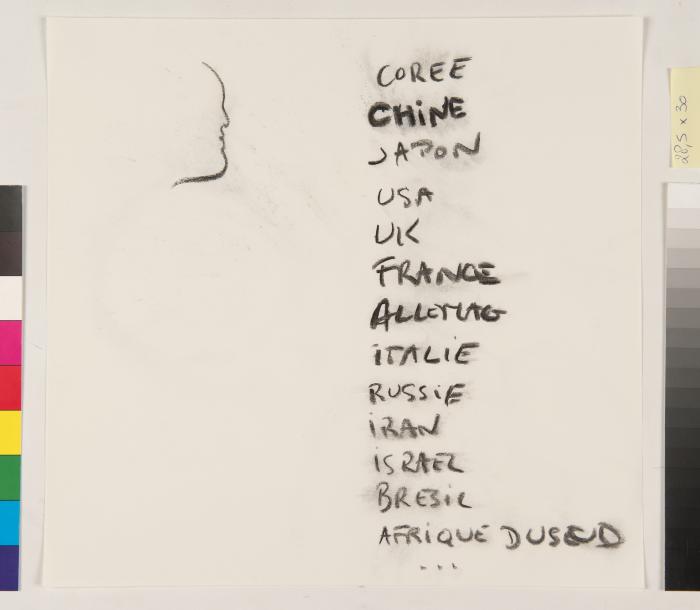 COREE
CHiNE
JAPON
USA
UK
FRANCE
ALLEMAG
iTALiE
RUSSiE
iRAN
iSRAEL
BRESiL
AFRiQUE DU SUD
...
28,5 x 30